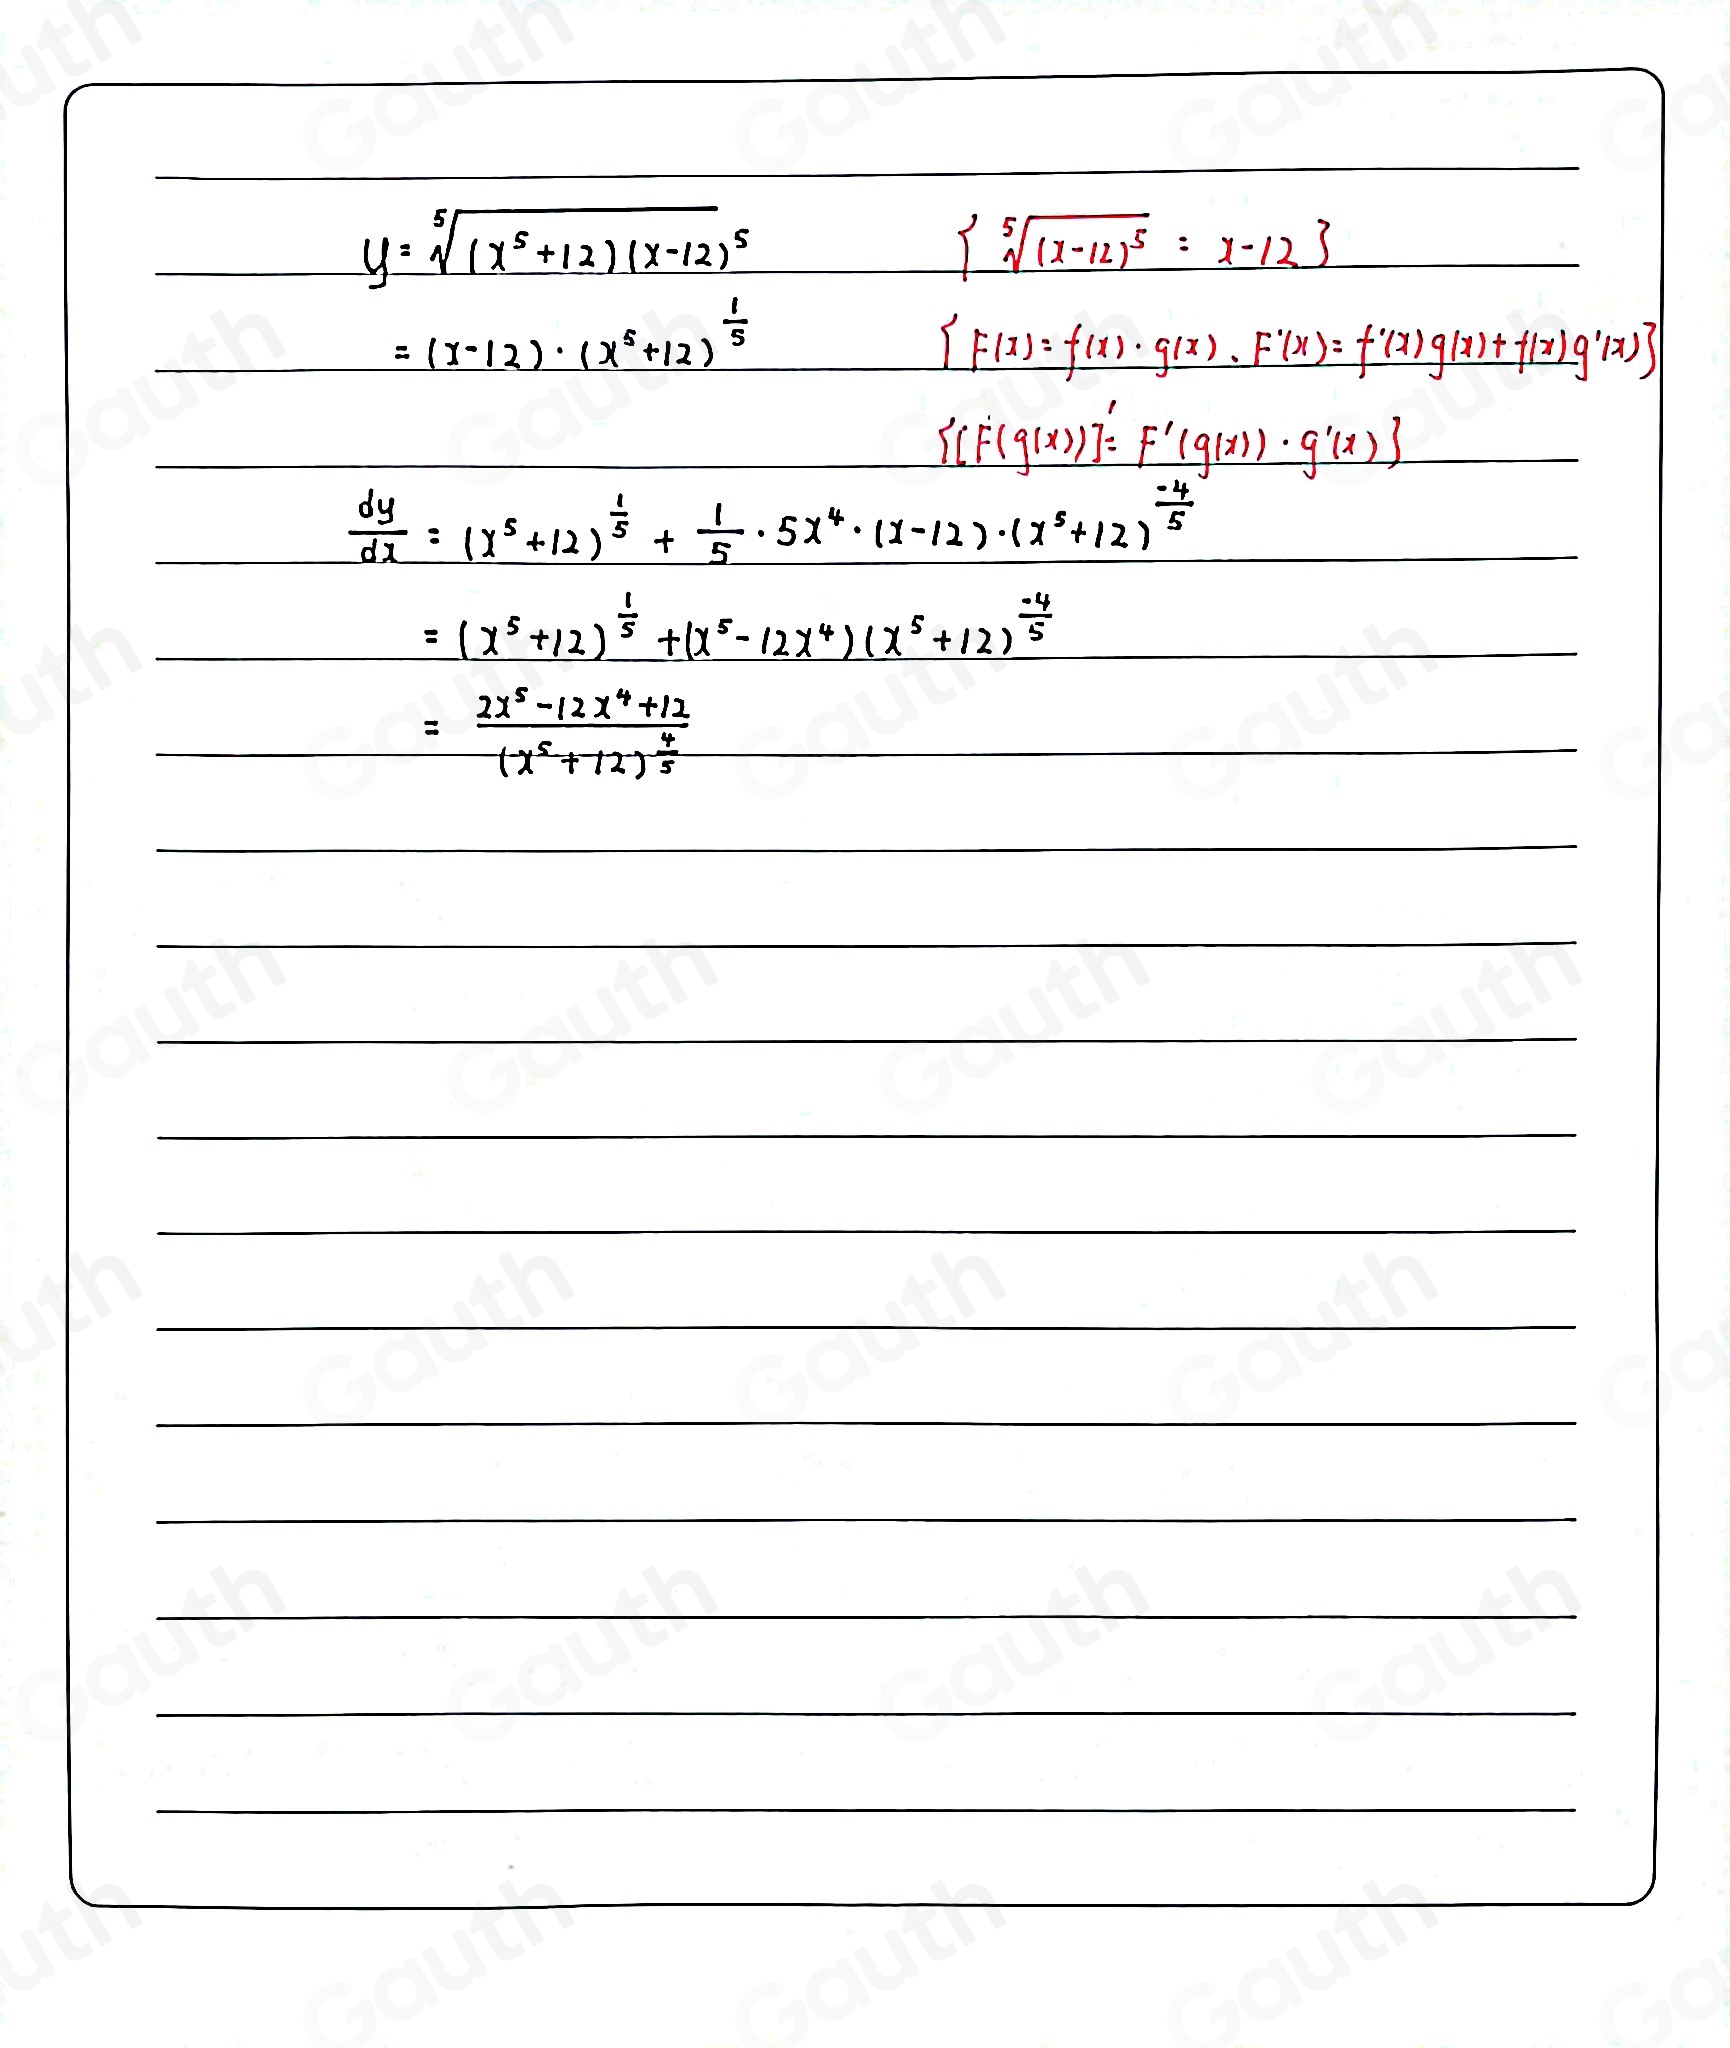 y = ⁵√(x⁵+12)(x-12)⁵ { ⁵√(x-12)⁵ = x-12 }
= (x-12)·(x⁵+12)^(1/5) { F(x)=f(x)·g(x). F'(x)=f'(x)g(x)+f(x)g'(x)}
{[F(g(x))]'= F'(g(x))·g'(x)}
dy/dx = (x⁵+12)^(1/5) + 1/5·5x⁴·(x-12)·(x⁵+12)^(-4/5)
= (x⁵+12)^(1/5) +(x⁵-12x⁴)(x⁵+12)^(-4/5)
= (2x⁵-12x⁴+12)/(x⁵+12)^(4/5)
Gauth